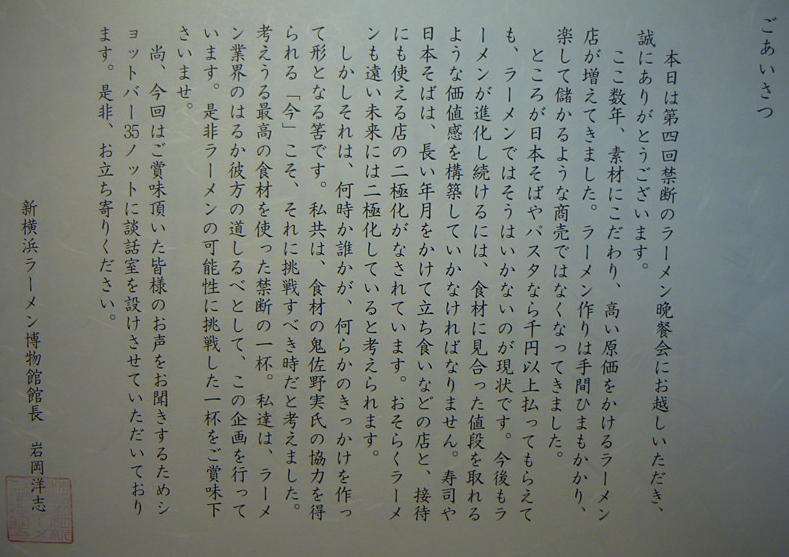 ごあいさつ
本日は第四回禁断のラーメン晩餐会にお越しいただき、
誠にありがとうございます。
ここ数年、素材にこだわり、高い原価をかけるラーメン
店が増えてきました。ラーメン作りは手間ひまもかかり、
楽して儲かるような商売ではなくなってきました。
ところが日本そばやパスタなら千円以上払ってもらえて
も、ラーメンではそうはいかないのが現状です。今後もラ
ーメンが進化し続けるには、食材に見合った値段を取れる
ような価値感を構築していかなければなりません。寿司や
日本そばは、長い年月をかけて立ち食いなどの店と、接待
にも使える店の二極化がなされています。おそらくラーメ
ンも遠い未来には二極化していると考えられます。
しかしそれは、何時か誰かが、何らかのきっかけを作っ
て形となる筈です。私共は、食材の鬼佐野実氏の協力を得
られる「今」こそ、それに挑戦すべき時だと考えました。
考えうる最高の食材を使った禁断の一杯。私達は、ラーメ
ン業界のはるか彼方の道しるべとして、この企画を行って
います。是非ラーメンの可能性に挑戦した一杯をご賞味下
さいませ。
尚、今回はご賞味頂いた皆様のお声をお聞きするためシ
ョットバー35ノットに談話室を設けさせていただいており
ます。是非、お立ち寄りください。
新横浜ラーメン博物館館長 岩岡洋志